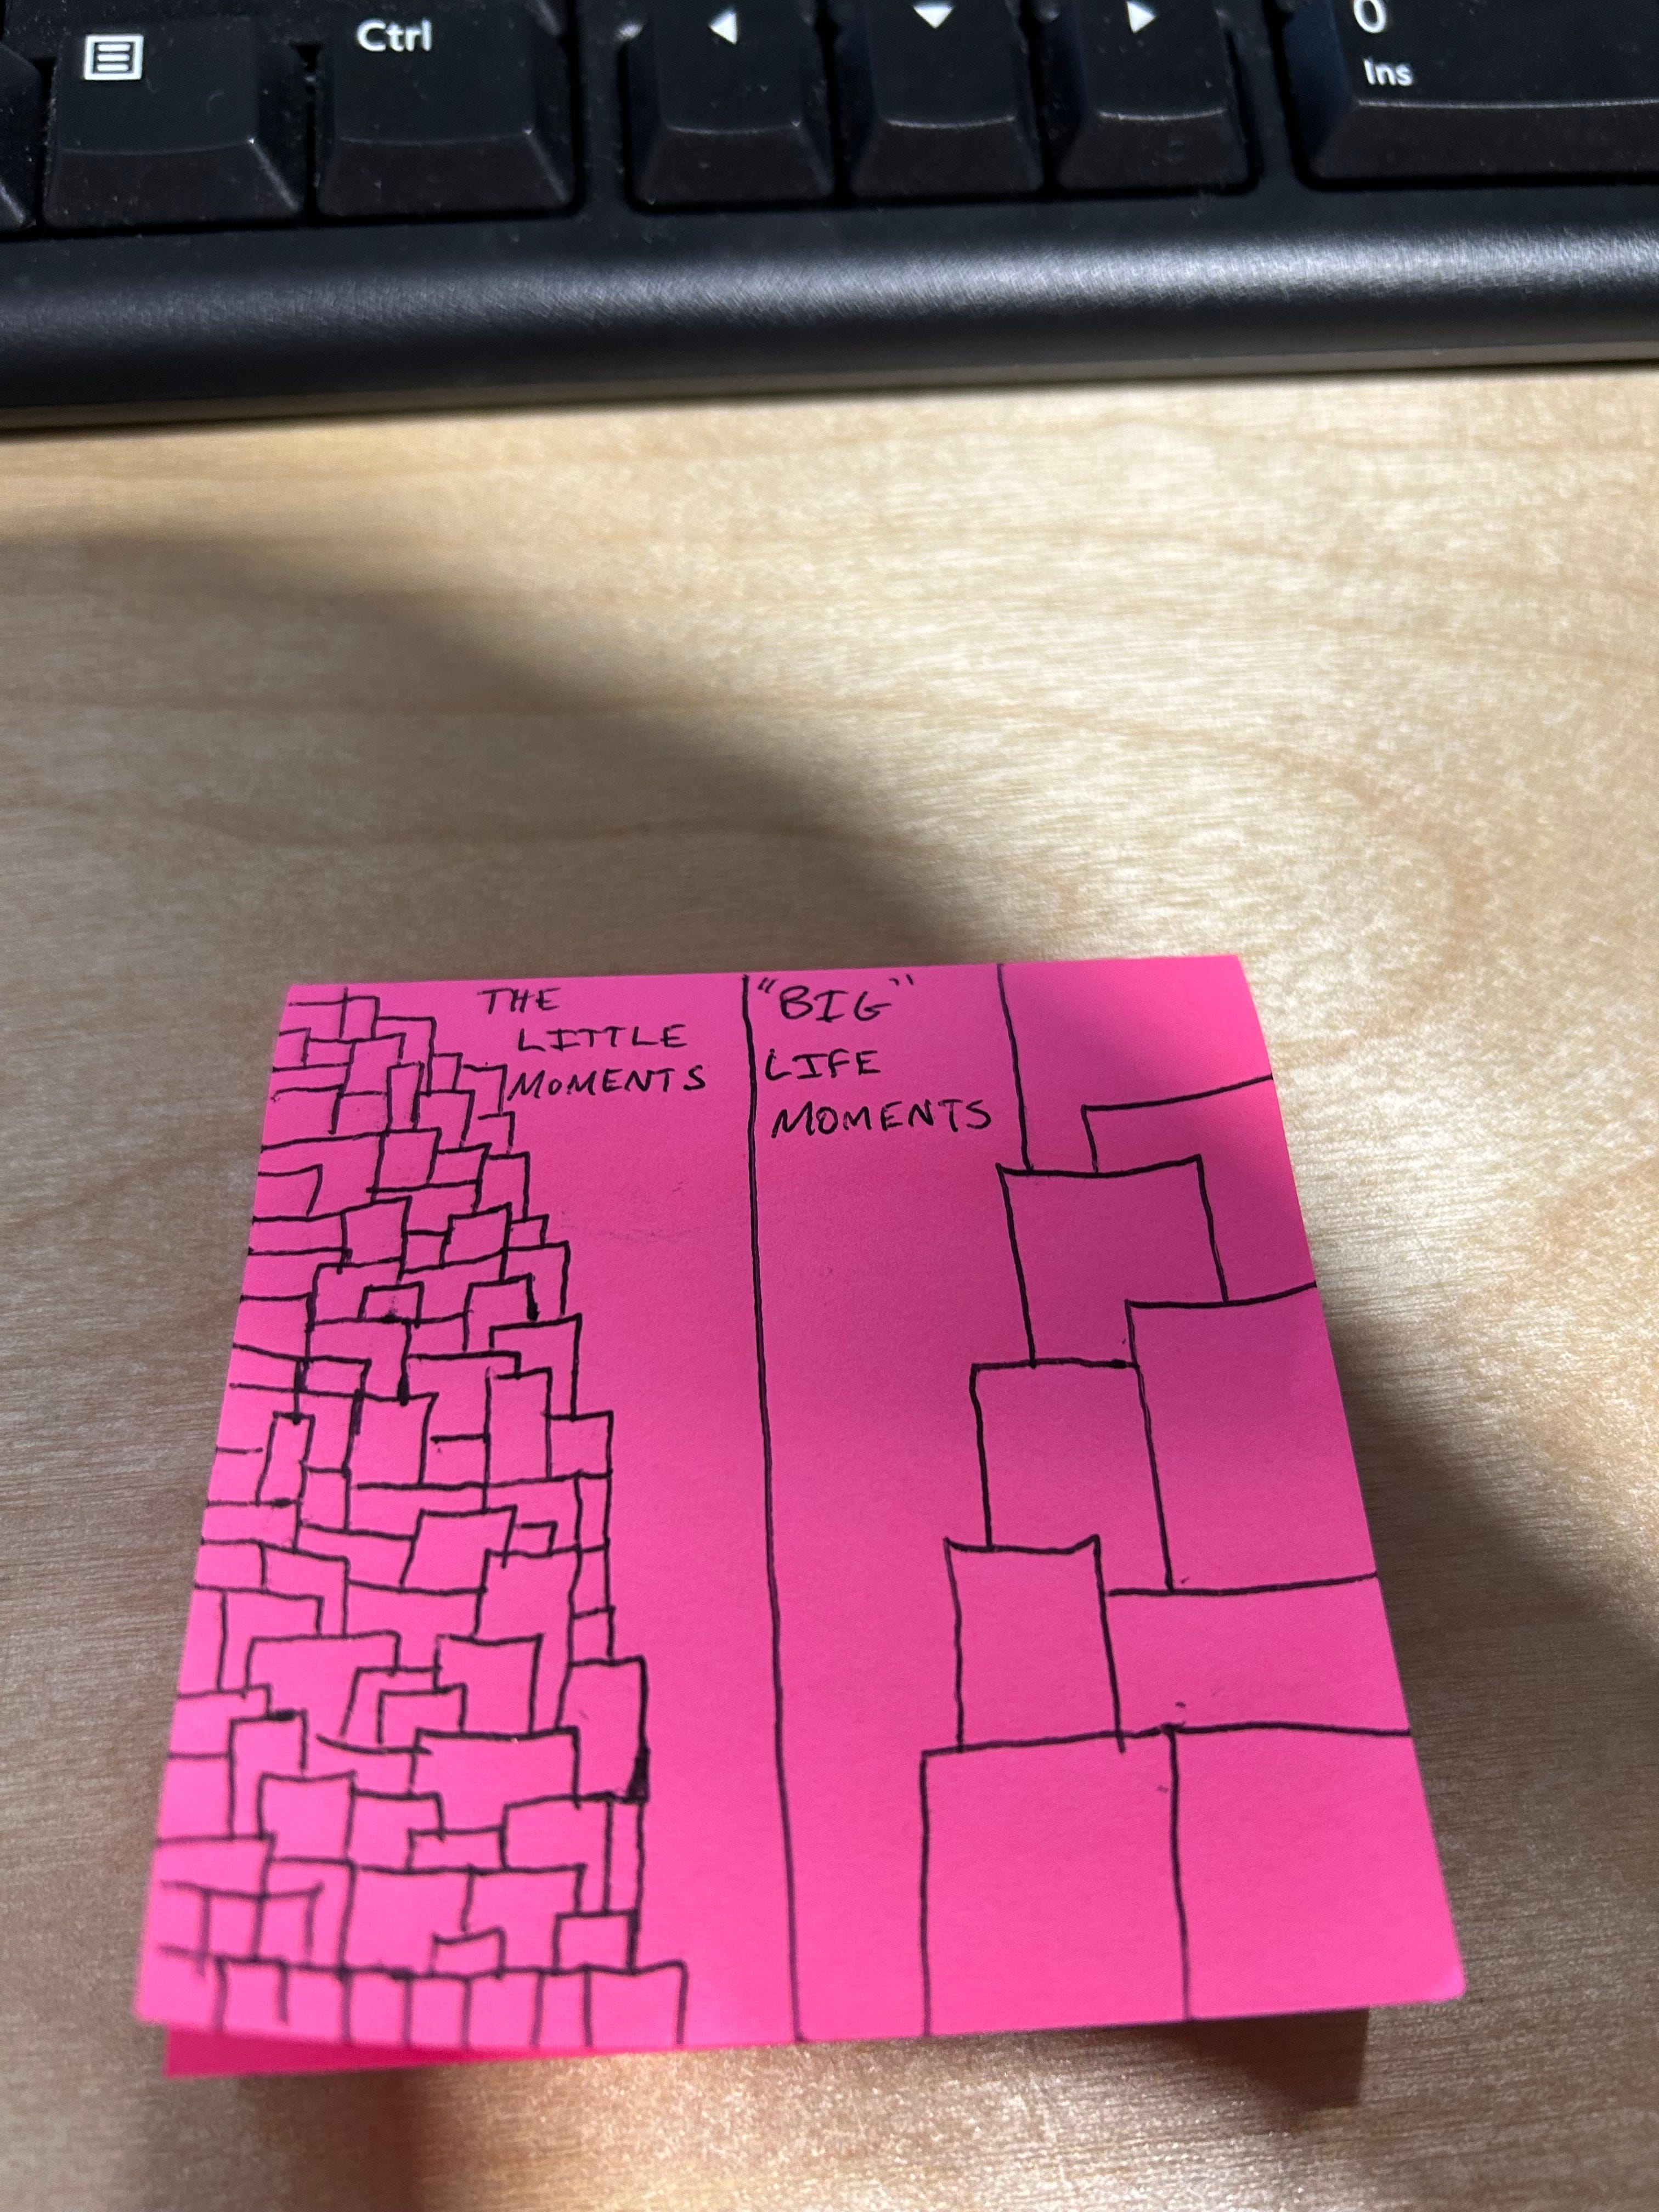 Ctrl
0
Ins
THE
LITTLE
MOMENTS
"BIG"
LIFE
MOMENTS